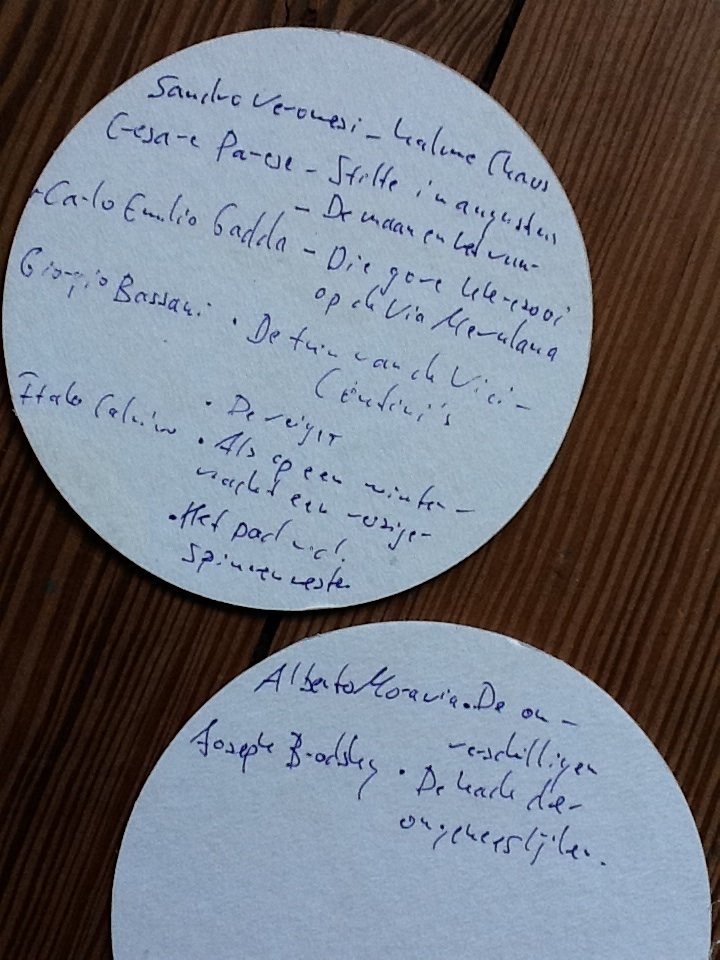 Sandro Veronesi - kalme Chaos
Cesare Pavese - Stilte in augustus
- De maan en het vuur
- Carlo Emilio Gadda - Die gore klerezooi
op de Via Merulana
Giorgio Bassani • De tuin van de Vici-
Contini's
• De reiger
Italo Calvino • Als op een winter-
nacht een reizige-
• Het pad v. d.
spinnennesten
Alberto Moravia. De on-
verschilligen
Joseph Brodsky • De kade der
ongeneeslijken.